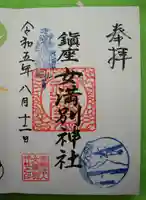 奉拝
鎮座
女満別神社
令和五年八月十二日